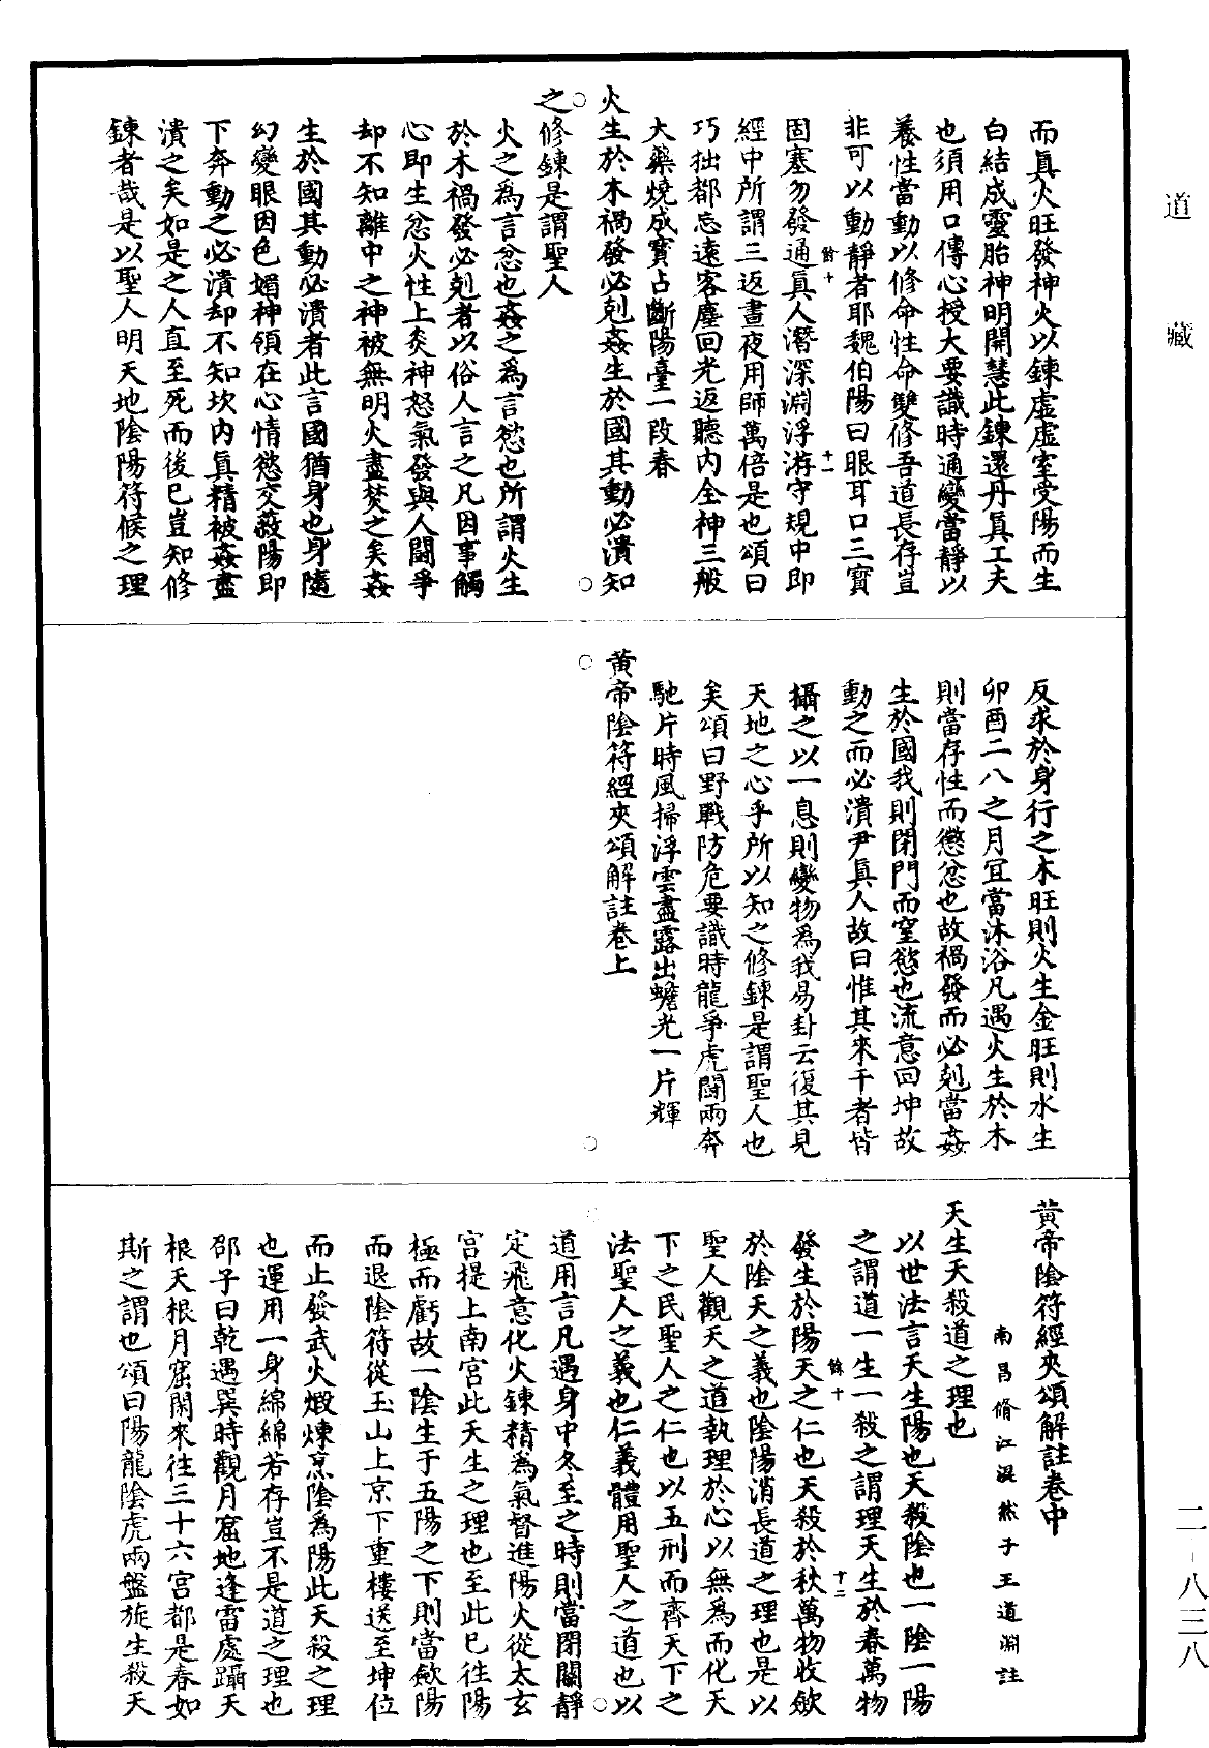 道藏
而真火旺發神火以鍊虛虛室受陽而生
白結成靈胎神明開慧此鍊還丹真工夫
也須用口傳心授大要識時通變當靜以
養性當動以修命性命雙修吾道長存豈
非可以動靜者耶魏伯陽曰眼耳口三寶
固塞勿發通真人潛深淵浮游守規中即
餘十
十一
經中所謂三返晝夜用師萬倍是也頌曰
巧拙都忘遠客塵回光返聽內全神三般
大藥燒成寶占斷陽臺一段春
火生於木禍發必剋姦生於國其動必潰知
之修鍊是謂聖人
火之為言忿也姦之為言慾也所謂火生
於木禍發必剋者以俗人言之凡因事觸
心即生忿火性上炎神怒氣發與人鬪爭
却不知離中之神被無明火盡焚之矣姦
生於國其動必潰者此言國猶身也身隨
幻變眼因色媚神領在心情慾交蔽陽即
下奔動之必潰却不知坎內真精被姦盡
潰之矣如是之人直至死而後已豈知修
鍊者哉是以聖人明天地陰陽符候之理
反求於身行之木旺則火生金旺則水生
卯酉二八之月宜當沐浴凡遇火生於木
則當存性而懲忿也故禍發而必剋當姦
生於國我則閉門而窒慾也流意回坤故
動之而必潰尹真人故曰惟其來干者皆
攝之以一息則變物為我易卦云復其見
天地之心乎所以知之修鍊是謂聖人也
矣頌曰野戰防危要識時龍爭虎鬪兩奔
馳片時風掃浮雲盡露出蟾光一片輝
黃帝陰符經夾頌解註卷上
黃帝陰符經夾頌解註卷中
南昌脩江混然子王道淵註
天生天殺道之理也
以世法言天生陽也天殺陰也一陰一陽
之謂道一生一殺之謂理天生於春萬物
發生於陽天之仁也天殺於秋萬物收斂
餘十
十二
於陰天之義也陰陽消長道之理也是以
聖人觀天之道執理於心以無為而化天
下之民聖人之仁也以五刑而齊天下之
法聖人之義也仁義體用聖人之道也以
道用言凡遇身中冬至之時則當閉關靜
定飛意化火鍊精為氣督進陽火從太玄
宮提上南宮此天生之理也至此已往陽
極而虧故一陰生于五陽之下則當斂陽
而退陰符從玉山上京下重樓送至坤位
而止發武火煅煉烹陰為陽此天殺之理
也運用一身綿綿若存豈不是道之理也
邵子曰乾遇巽時觀月窟地逢雷處躡天
根天根月窟閑來往三十六宮都是春如
斯之謂也頌曰陽龍陰虎兩盤旋生殺天
二一-八三八